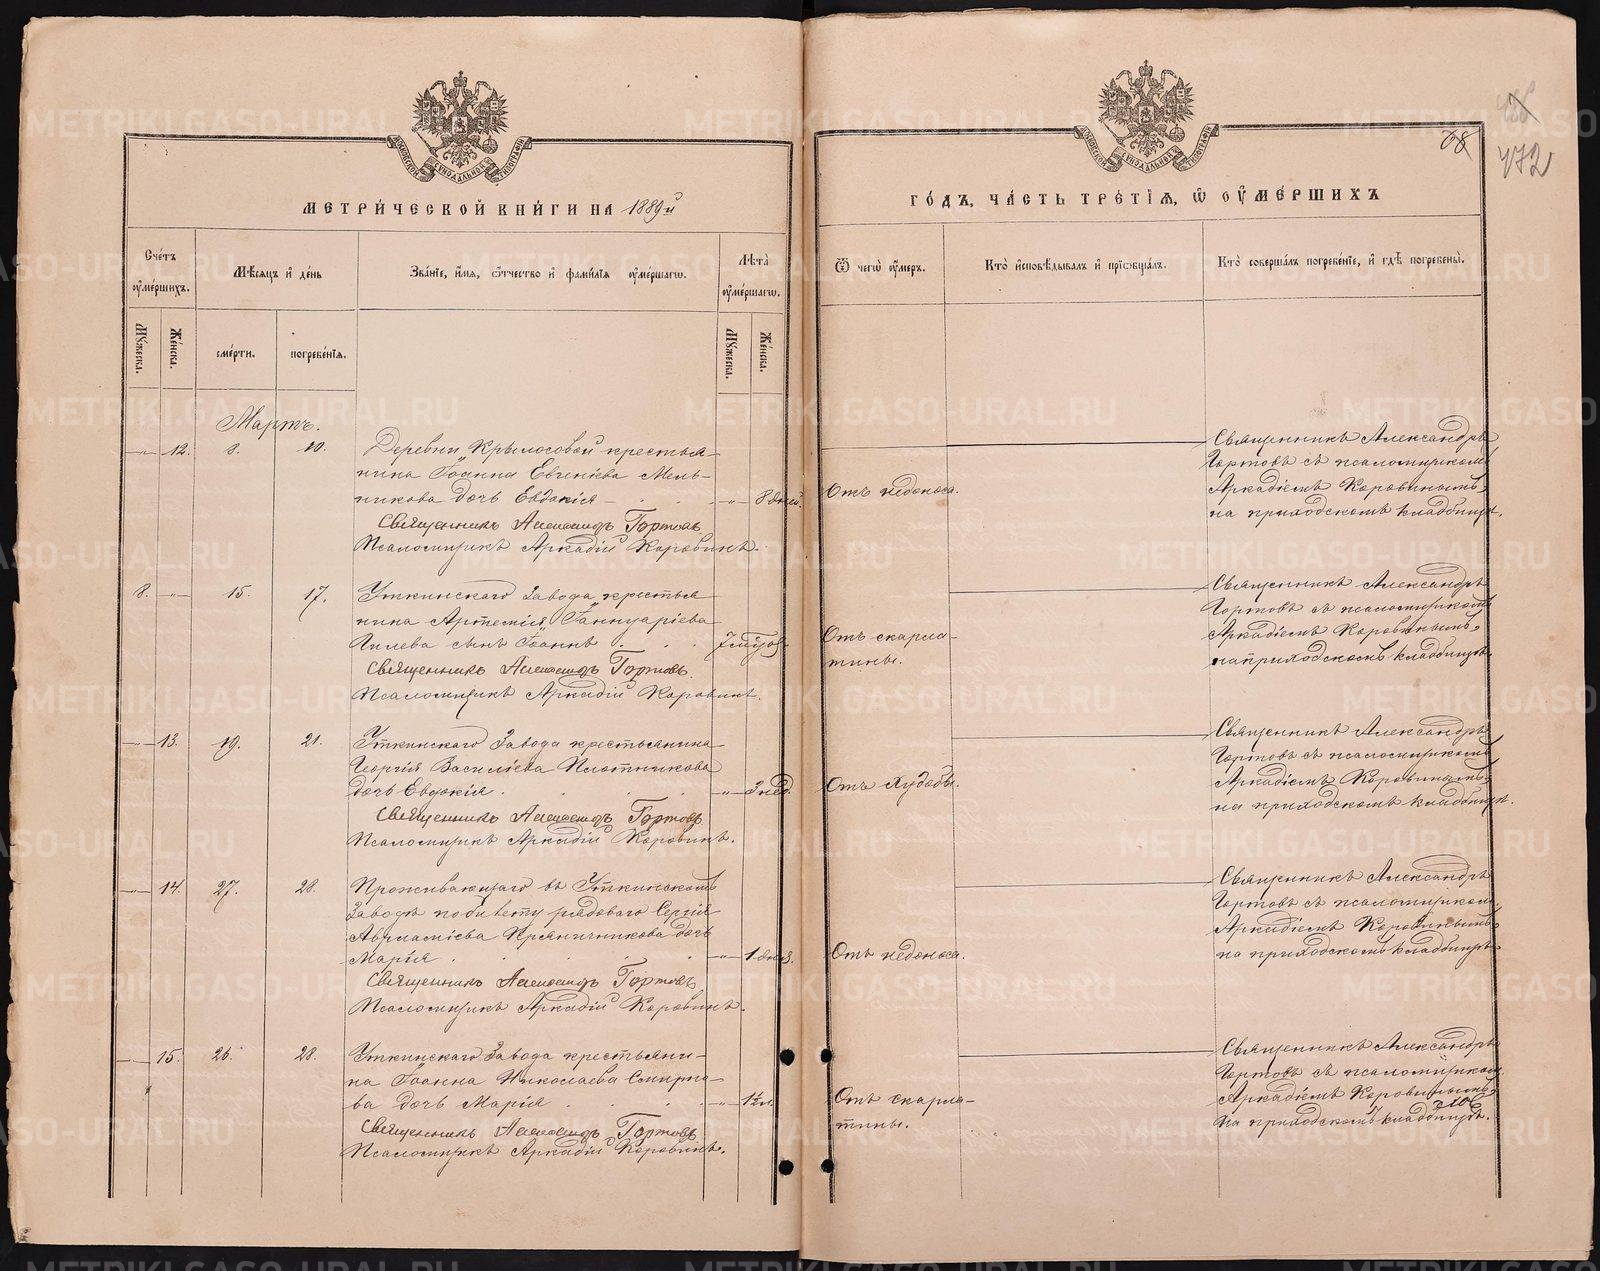 МЕТРИЧЕСКОЙ КНИГИ НА 1889й
Счетъ умершихъ.
Мѣсяцъ и день
Званіе, имя, отчество и фамилія умершаго.
Лѣта умершаго.
Мужеска.
Женска.
смерти.
погребенія.
Мужеска.
Женска.
Мартъ.
12. 8. 10. Деревни Крылосовой крестья-
нина Іоанна Евгеніева Мель-
никова дочь Евдокія 8 дней.
Священникъ Александръ Гортовъ
Псаломщикъ Аркадій Коровинъ.
8. 15. 17. Уткинскаго завода крестья
нина Артемія Іаннуаріева
Гилева сынъ Іоаннъ
Священникъ Александръ Гортовъ.
Псаломщикъ Аркадій Коровинъ.
13. 19. 21. Уткинскаго Завода крестьянина
Георгія Василіева Плотникова
дочь Евдокія 3 нед.
Священникъ Александръ Гортовъ
Псаломщикъ Аркадій Коровинъ.
14. 27. 28. Проживающаго въ Уткинскомъ
Заводѣ по билету рядоваго Сергія
Авраміева Пряничникова дочь
Марія 1 день.
Священникъ Александръ Гортовъ
Псаломщикъ Аркадій Коровинъ.
15. 26. 28. Уткинскаго Завода крестьяни-
на Іоанна Николаева Смирно-
ва дочь Марія 1½ л.
Священникъ Александръ Гортовъ
Псаломщикъ Аркадій Коровинъ.
68
472
ГОДЪ, ЧАСТЬ ТРЕТІЯ, Ѡ УМЕРШИХЪ
Ѿ чегѡ умеръ.
Кто исповѣдывалъ и пріобщалъ.
Кто совершалъ погребеніе, и гдѣ погребены.
Отъ недоноса.
Священникъ Александръ
Гортовъ съ псаломщикомъ
Аркадіемъ Коровинымъ,
на приходскомъ кладбищѣ.
Отъ скарла-
тины.
Священникъ Александръ
Гортовъ съ псаломщикомъ
Аркадіемъ Коровинымъ,
на приходскомъ кладбищѣ.
Отъ худобы.
Священникъ Александръ
Гортовъ съ псаломщикомъ
Аркадіемъ Коровинымъ,
на приходскомъ кладбищѣ.
Отъ недоноса.
Священникъ Александръ
Гортовъ съ псаломщикомъ
Аркадіемъ Коровинымъ
на приходскомъ кладбищѣ.
Отъ скарла-
тины.
Священникъ Александръ
Гортовъ съ псаломщикомъ
Аркадіемъ Коровинымъ
на приходскомъ кладбищѣ.
METRIKI.GASO-URAL.RU